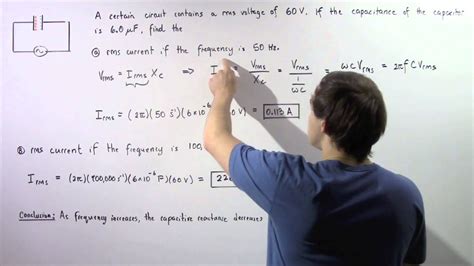 A certain circuit contains a rms voltage of 60 V. If the capacitance of the capacitor
is 6.0 μF, find the
Ⓐ rms current if the frequency is 50 Hz.
V_rms = I_rms X_c ⇒ I = V_rms / X_c = V_rms / (1/ωC) = ωC V_rms = 2πf C V_rms
I_rms = (2π)(50 s⁻¹)(6×10⁻⁶ 60V) = 0.113 A
Ⓑ rms current if the frequency is 100,
I_rms = (2π)(100,000 s⁻¹)(6×10⁻⁶ F)(60 V) =
Conclusion: As frequency increases, the capacitive reactance decreases